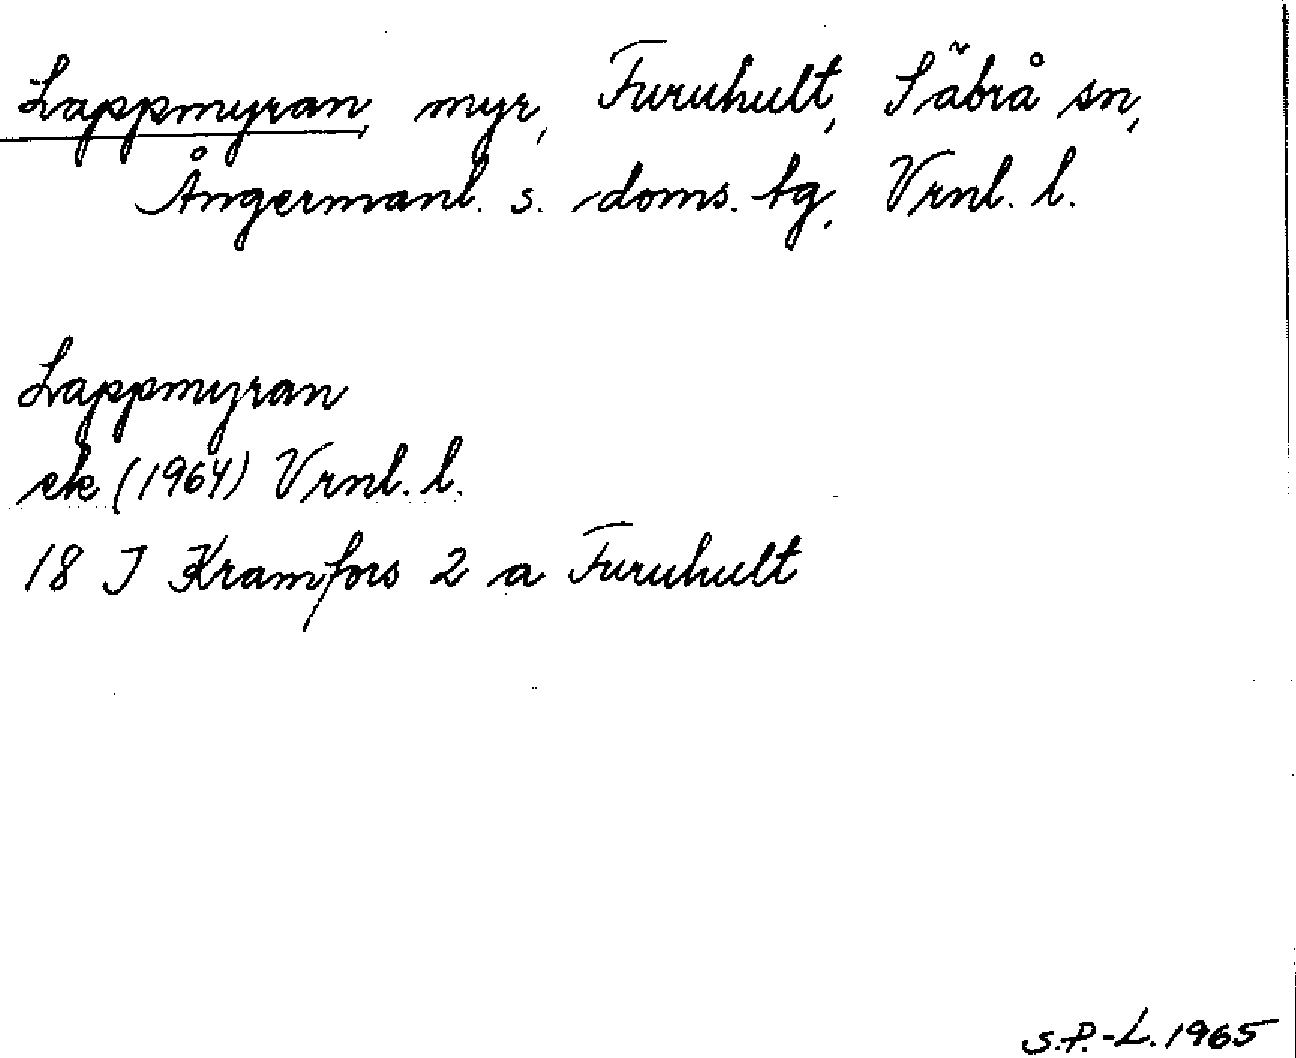 Lappmyran, myr, Furuhult, Säbrå sn,
Ångermanl. s. doms. tg, Vrnl. l.
Lappmyran
ek (1964) Vrnl. l.
18 I Kramfors 2 a Furuhult
S.P.-L. 1965